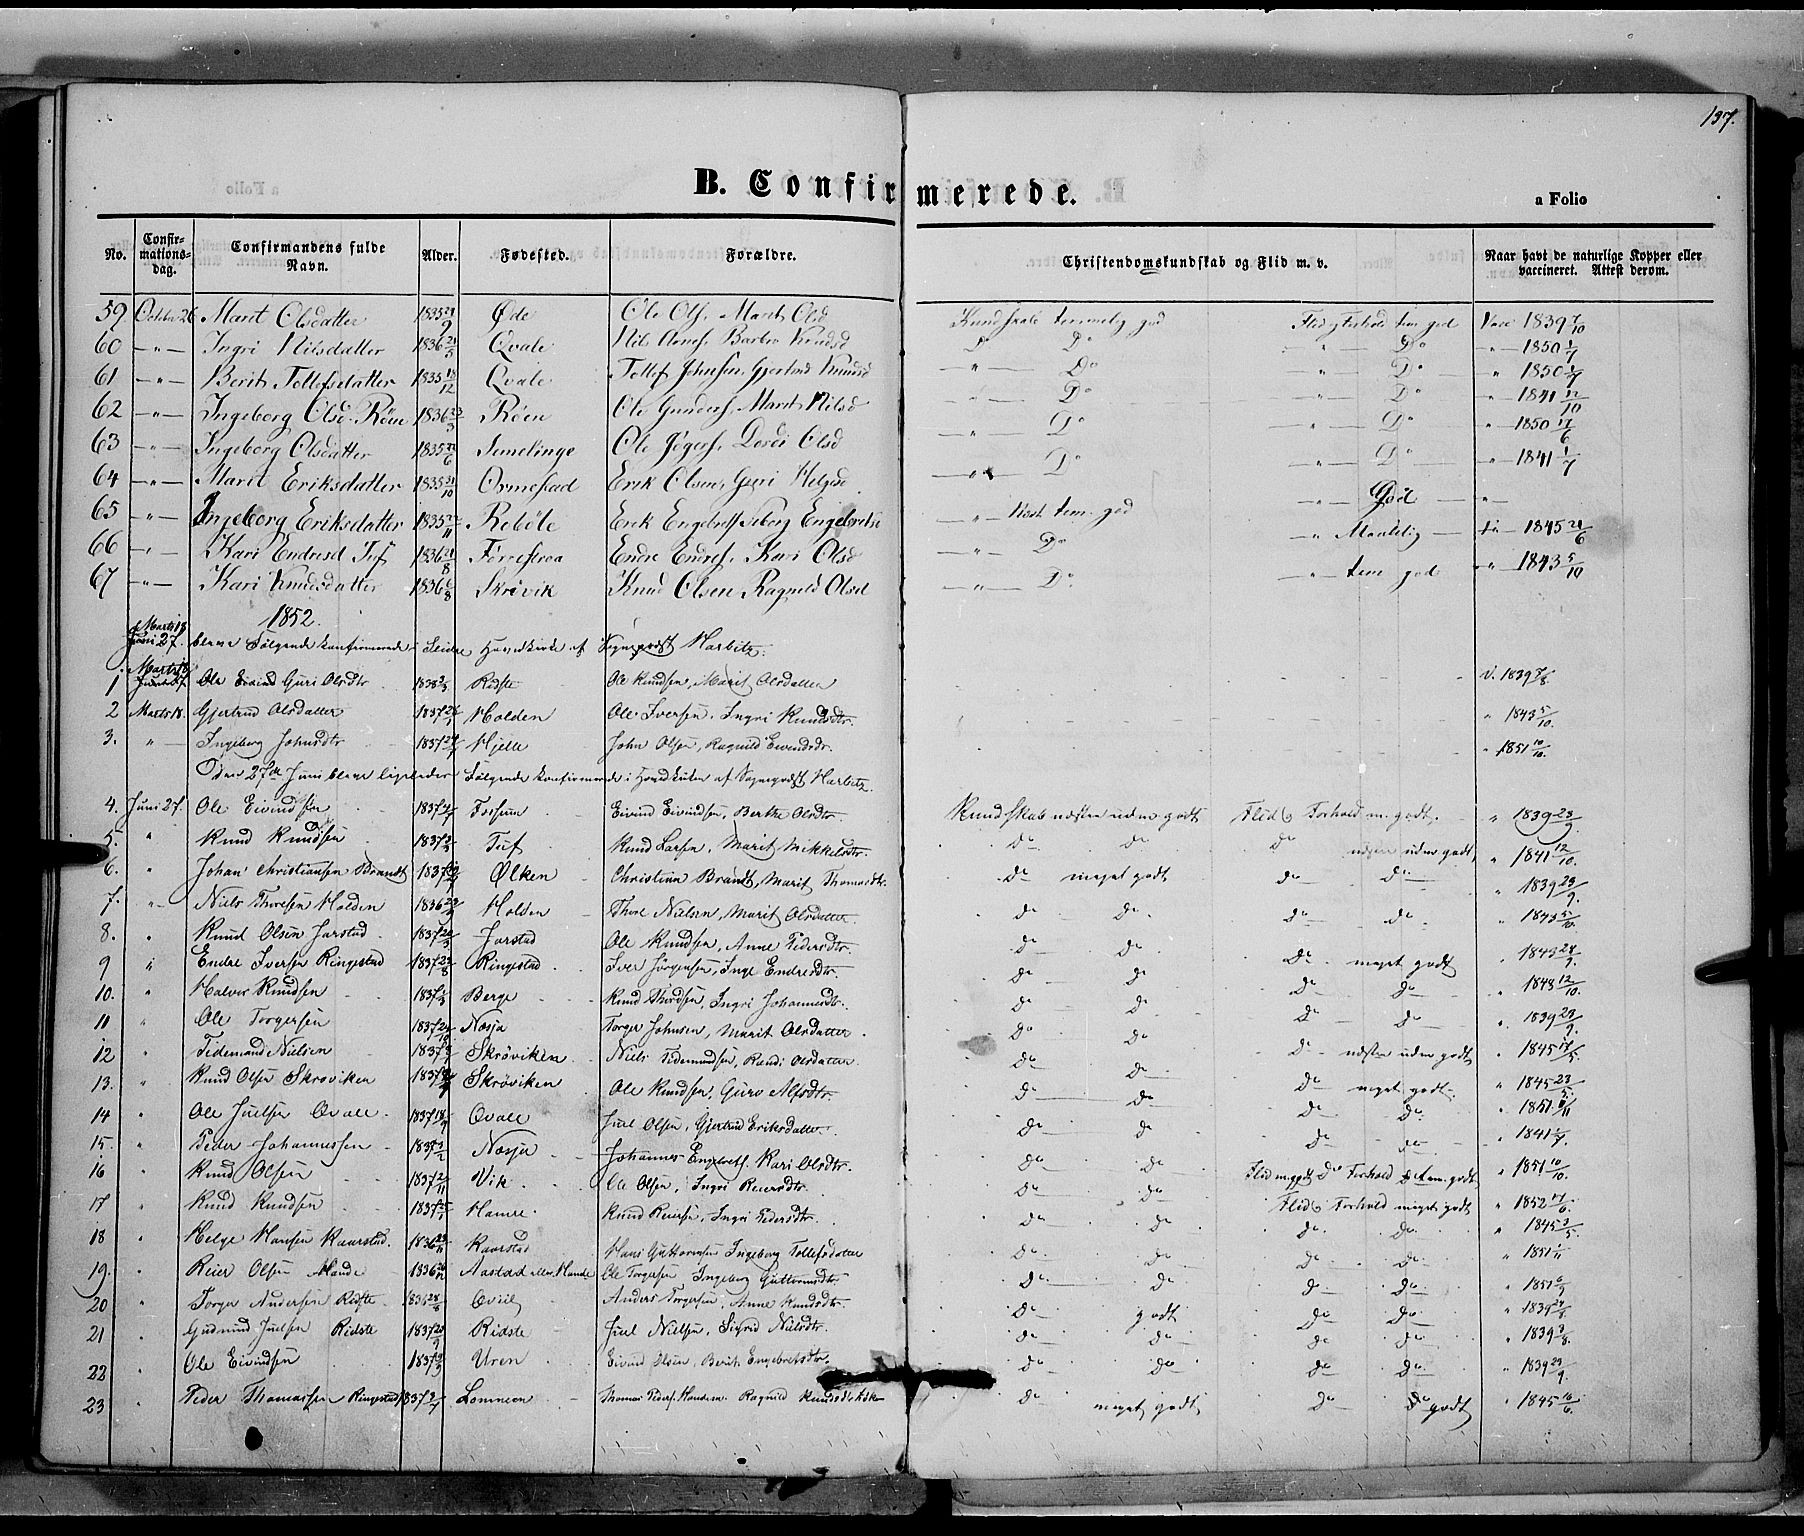 137.
B. Confirmerede.
a Folio
No. Confirmationsdag. Confirmandens fulde Navn. Alder. Fødested. Forældre. Christendomskundskab og Flid m. v. Naar havt de naturlige Kopper eller vaccineret. Attest derom.
59 October 26 Marit Olsdatter 1835 Øde Ole Ols. Marit Olsd Kundskab temmelig god Flid og Forhold tem god Vacc 1839 7/10
60 -"- Ingri Nilsdatter 1836 Qvale Nils Barbro Knudsd Do Do " Do "-1850 1/7
61 -"- Berit Tollefsdatter 1835 Qvale Tollef Johnsen, Gjertrud Knudsd " Do " Do " 1850 1/7
62 -"- Ingeborg Olsd. Röen 1836 Röen Ole Gunders. Marit Nilsd Do Do " 1841 12/10
63 -"- Ingeborg Olsdatter 1835 Semelinge Ole Dordi Olsd " Do " Do " 1850 17/6
64 -"- Marit Eriksdatter 1835 Ormestad Erik Olsen, Guri Helgesd " Do " Do "-1841 1/7
65 -"- Ingeborg Eriksdatter 1835 Roböle Erik Engebretsd " Næst tem. god " God "
66 -"- Kari Endresd Tuf 1836 Endre Endres. Kari Olsd " Do " Maadelig 1845 21/6
67 -"- Kari Knudsdatter 1836 6/8 Skrövik Knud Olsen Ragnild Olsd " Do " tem god " 1843 5/10
1852.
Marts 18
Juni 27. bleve Følgende konfirmerede i Hovedkirke af Sognepræst Harbitz.
1 Marts 18 Ole Guri Olsdtr 1838 Ridste Ole Knudsen, Marit Olsdatter v. 1839 7/8
2 Marts 18. Gjertrud Olsdatter 1837 Holden Ole Iversen, Ingri Knudsdtr. " 1843 5/10.
3. " Ingeborg Johnsdtr 1837 Hjelle John Olsen, Ragnild Eivindsdtr. " 1851 10/10.
Den 27de Juni bleve ligeledes Følgende konfirmerede i Hovedkirken af Sognepræst Harbitz.
4. Juni 27. Ole Eivindsen 1837 Forsum Eivind Eivindsen, Berthe Olsdtr. Kundskab næsten uden godt Flid & Forhold m. godt. " 1839 23/9.
5. " Knud Knudsen 1837 Tuf Knud Larsen, Marit Mikkelsdtr. do do do næsten uden godt, " 1841 12/10.
6. " Johan Christiansen Brandt 1837 Ølken Christian Brandt, Marit Thomasdtr. do meget godt do do " 1839 23/9.
7. " Niels Thoresen Holden 1836 Holden Thore Nielsen, Marit Olsdatter do do do do " 1843 5/10.
8. " Knud Olsen Jarstad 1837 Jarstad Ole Knudsen, Anne Pedersdtr. do do do meget godt " 1849
9 " Endre Iversen Ringestad 1837 Ringestad Iver Jörgensen, Inge Endresdtr. do do do do " 1843 12/10.
10. " Halvor Knudsen 1837 Berge Knud Thordsen, Ingri Johannesdtr. do do do do " 1839 23/9.
11 " Ole Torgersen 1837 Nosja Torger Johnsen, Marit Olsdatter. do do do næsten uden godt " 1845 17/5.
12 " Tidemand Nielsen 1837 Skröviken Niels Tidemandsen, Randi Olsdatter do do do meget godt " 1845 23/5.
13. " Knud Olsen Skröviken 1837 Skröviken Ole Knudsen, Guro Alfsdtr. do do do do " 1851
14 " Ole Juelsen Qvale 1837 Qvale Juel Olsen, Gjertrud Eriksdatter. do do do do " 1841 1/7.
15. " Peder Johannessen 1837 Nosja Johannes Engebrets. Kari Olsdtr. do do Flid meget do Forhold tem. godt " 1851 10/10.
16 " Knud Olsen 1837 Vik Ole Olsen, Ingri Reiersdtr. do do Flid & Forhold meget godt " 1852 17/6.
17 " Knud Knudsen 1837 Hamre Knud Reiersen, Ingri Pedersdtr. do do do do " 1845 3/5.
18 " Helge Hansen Kaarstad. 1836 Kaarstad Hans Guttormsen Ingeborg Tollefsdatter do do do do " 1851
19. " Reier Olsen Hande 1836 Aastad eller Hande Ole Torgersen, Ingeborg Guttormsdtr do do do do " 1851
20 " Torger Andersen Ridste 1836 Anders Torgersen, Anne Knudsdtr. do godt do do " 1839
21 " Gudmund Juelsen Ridste 1837 Ridste Juel Nielsen, Sigrid Nielsdtr. do do do do " 1839 3/8.
22 " Ole Eivindsen 1837 Uren Eivind Olsen, Berit Engebretsdtr. do do do do " 1839 23/9.
23 " Peder Thomassen Ringestad 1837 Lomneon Thomas Peders. Ragnild Knudsdtr do meget godt do do godt " 1845 16/6.